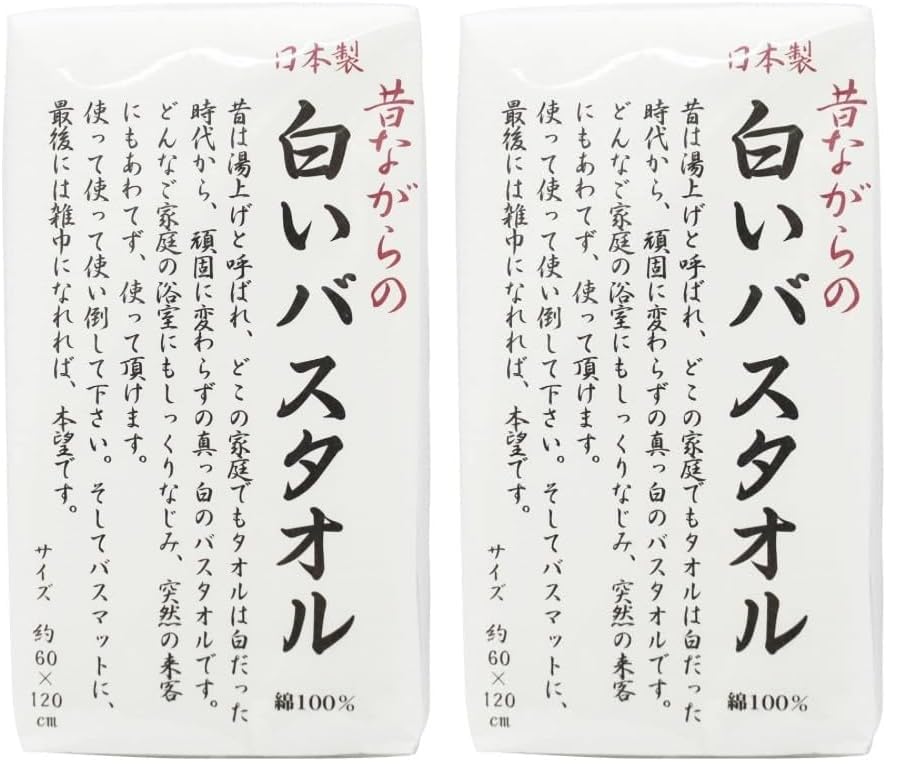 日本製
昔ながらの
白いバスタオル
綿100%
昔は湯上げと呼ばれ、どこの家庭でもタオルは白だった
時代から、頑固に変わらずの真っ白のバスタオルです。
どんなご家庭の浴室にもしっくりなじみ、突然の来客
にもあわてず、使って頂けます。
使って使って使い倒して下さい。そしてバスマットに、
最後には雑巾になれれば、本望です。
サイズ 約60×120cm
日本製
昔ながらの
白いバスタオル
綿100%
昔は湯上げと呼ばれ、どこの家庭でもタオルは白だった
時代から、頑固に変わらずの真っ白のバスタオルです。
どんなご家庭の浴室にもしっくりなじみ、突然の来客
にもあわてず、使って頂けます。
使って使って使い倒して下さい。そしてバスマットに、
最後には雑巾になれれば、本望です。
サイズ 約60×120cm